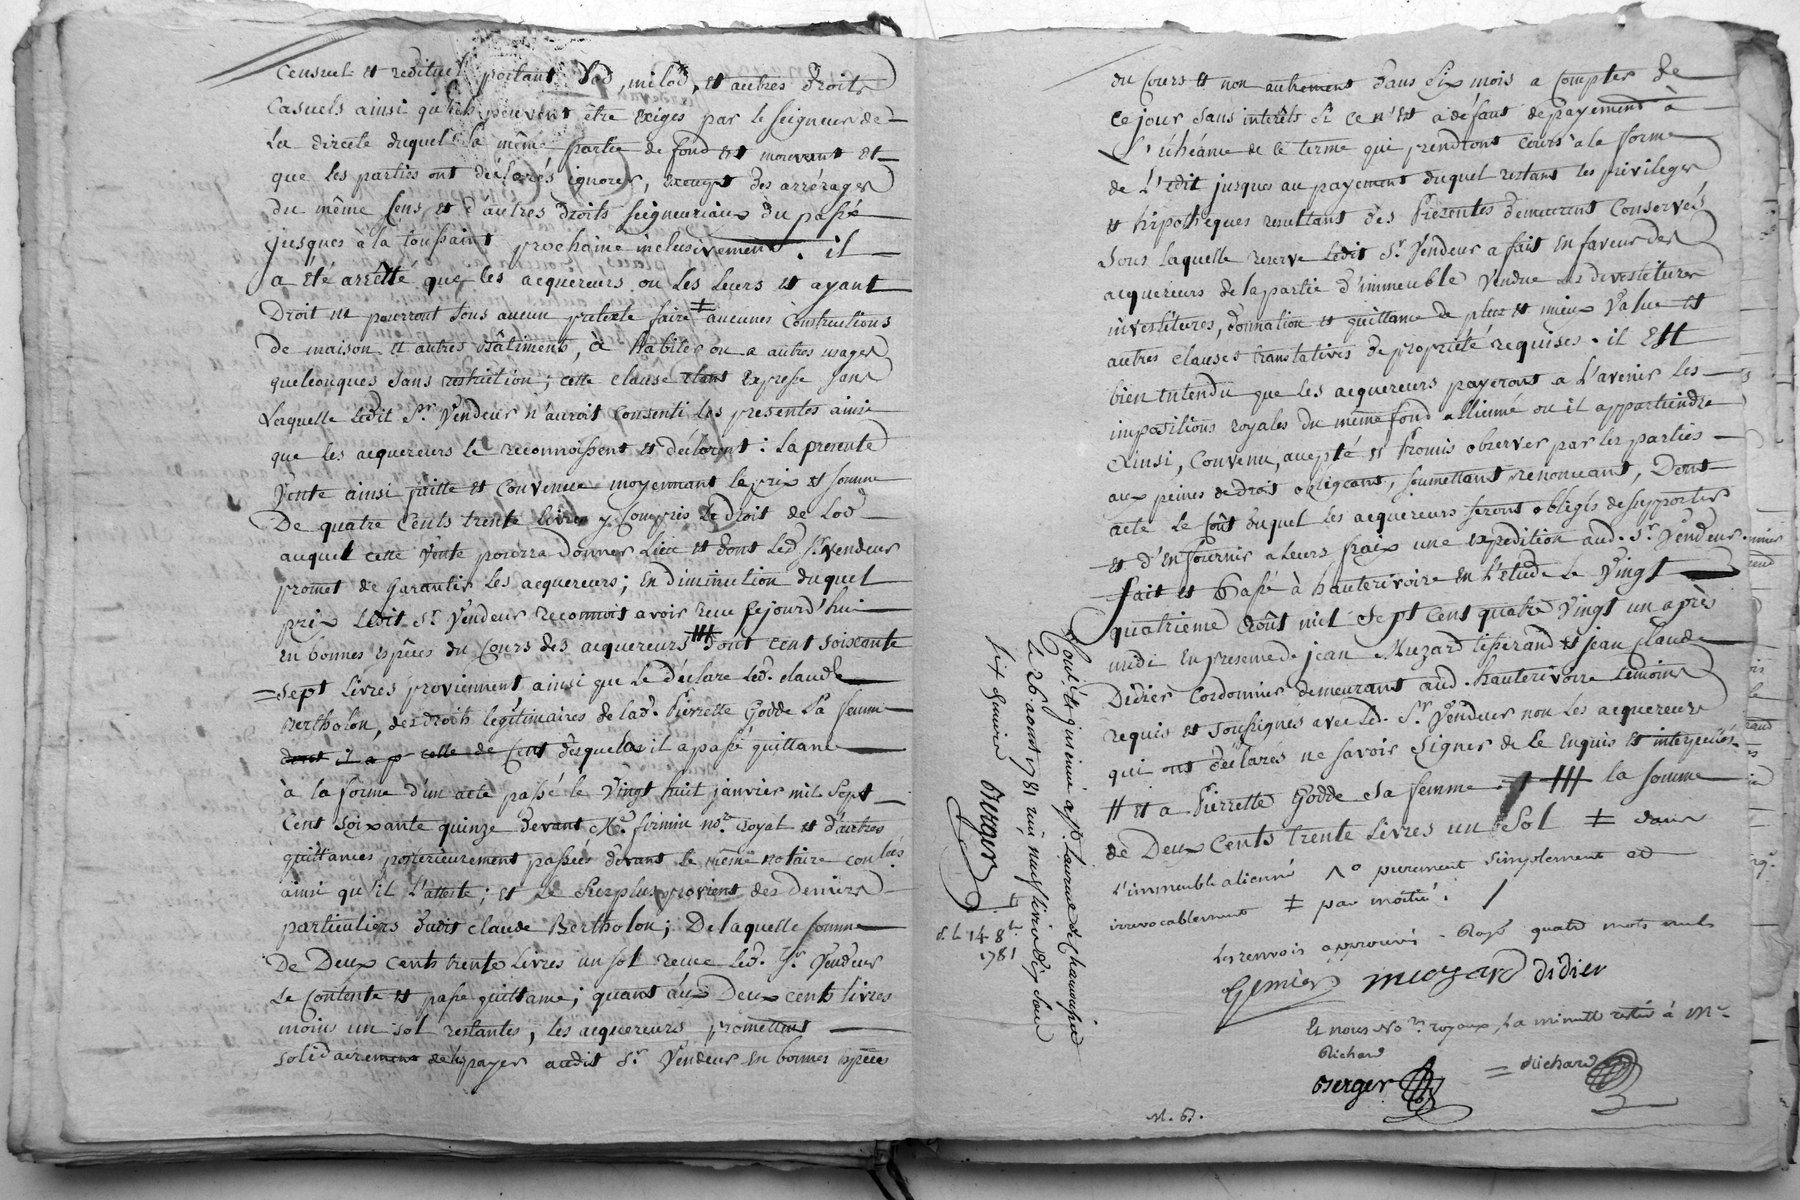 Censuel et redituel portant Lod, milod, et autres droits
Casuels ainsi qu'ils peuvent être exigés par le seigneur de
La directe duquel la même partie de fond est mouvant et
que les parties ont déclarés ignorer, exempt des arrérages
du même Cens et d'autres droits seigneuriaux du passé
jusques à la toussaint prochaine inclusivement. il
a été arretté que les acquereurs ou Les Leurs et ayant
Droit ne pourront sous aucun pretexte faire ‡ aucunes Constructions
De maison et autres Bâtiments, a habiter ou a autres usages
quelconques sans restriction; cette clause etant expresse sans
Laquelle Ledit Sr. Vendeur n'auroit Consenti les presentes ainsi
que les acquereurs le reconnoissent et déclarent: La presente
Vente ainsi faitte et Convenue moyennant le prix et somme
De quatre Cents trente livres y Compris Le droit de Lod
auquel cette Vente pourra donner Lieu et dont Led. Sr. Vendeur
promet de garantir Les acquereurs; en diminution duquel
prix Ledit Sr. Vendeur reconnoit avoir reçu cejourd'hui
en bonnes espèces du Cours des acquereurs # dont cent soixante
sept Livres proviennent ainsi que Le déclare Led. claude
Bertholon, des droits legitimaires de lad. Pierrette Godde Sa femme
Cent desquelles il a passé quittance
à la forme d'un acte passé le Vingt huit janvier mil Sept
Cent soixante quinze devant Me. firmin nore. royal et d'autres
quittances posterieurement passées devant le même notaire
ainsi qu'il L'atteste; et Le Surplus provient des deniers
particuliers dudit claude Bertholon; De laquelle somme
De Deux cents trente Livres un sol reçue Led. Sr. Vendeur
Se Contente et passe quittance; quant aux Deux cents livres
moins un sol restantes, les acquereurs promettent
solidairement de les payer audit Sr. Vendeur en bonnes espèces
du Cours et non autrement dans Six mois a Compter de
Ce jour sans interêts Si Ce n'est a défaut de payement à
L'échéance de ce terme qui prendront cours a la forme
de L'edit jusques au payement duquel restant les privileges
et hipotheques resultant des Presentes demeurent Conservés
Sous laquelle reserve Ledit Sr. Vendeur a fait en faveur des
acquereurs de la partie d'immeuble vendue les devestitures
investitures, donnation et quittance de plus et mieux Value et
autres clauses translatives de propriété requises. il Est
bien entendu que Les acquereurs payeront a L'avenir les
impositions royales du même fond allienné ou il appartiendra
Ainsi, Convenu, accepté et Promis observer par les parties
aux peines de droit obligeant, soumettant, renonceant, Dont
acte Le Coût duquel les acquereurs seront obligés de supporter
et d'en fournir a Leurs fraix une expedition aud. Sr. Vendeur.
fait et Passé à hauterivoire en L'etude Le Vingt
quatrieme Aoust mil Sept Cent quatre Vingt un après
midi en presence de jean Muzard tisserand et jean claude
Didier Cordonnier demeurans aud. hauterivoire temoins
requis et soussignés avec Led. Sr. Vendeur non Les acquereurs
qui ont déclarés ne savoir Signer de Le Enquis et interpellés
# et a Pierrette Godde Sa femme # la somme
de Deux Cents trente Livres un Sol ‡ dans
L'immeuble alienné purement simplement et
irrevocablement ‡ par moitié /
Les renvois approuvés. Rayé quatre mots nuls
muzard didier
Et nous Nores. royaux, La minutte restée à Me
Richard
Berger Richard
Le 26 aoust 1781 reçu neuf livres dix sous
six deniers Berger
d. L. 14. 8bre
1781